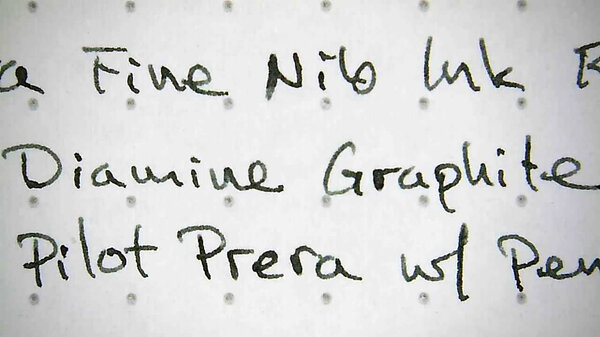 a Fine Nib Ink
Diamine Graphite
Pilot Prera w/ Pen